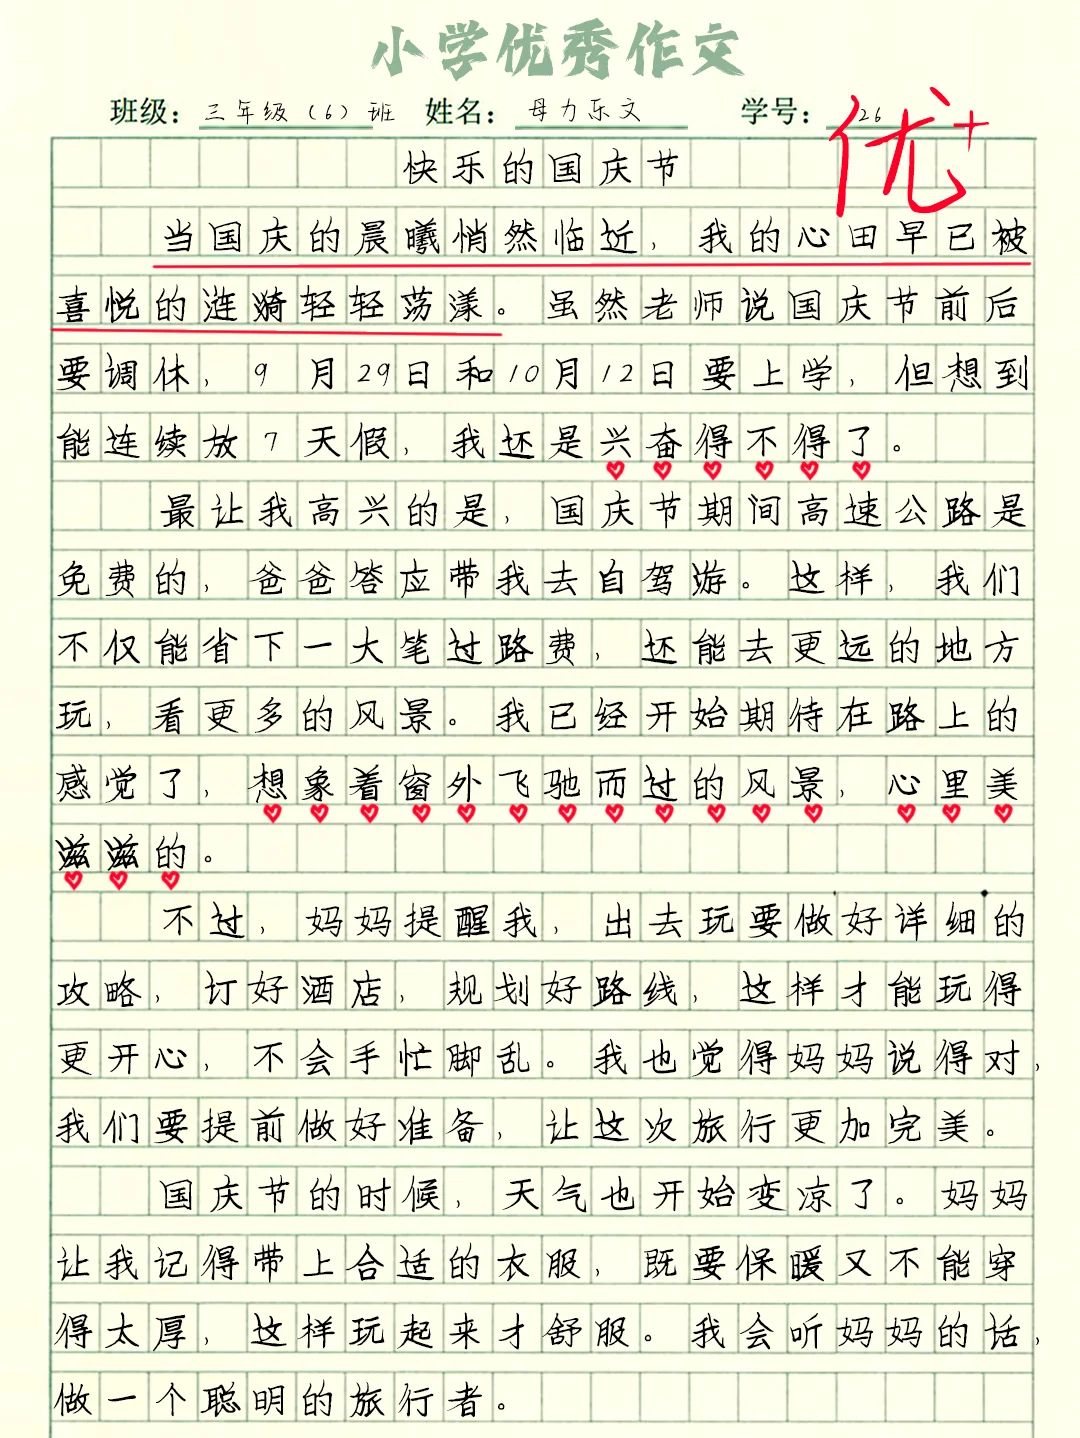 小学优秀作文
班级：三年级（6）班 姓名：母力乐文 学号：26
优+
快乐的国庆节
当国庆的晨曦悄然临近，我的心田早已被
喜悦的涟漪轻轻荡漾。虽然老师说国庆节前后
要调休，9月29日和10月12日要上学，但想到
能连续放7天假，我还是兴奋得不得了。
最让我高兴的是，国庆节期间高速公路是
免费的，爸爸答应带我去自驾游。这样，我们
不仅能省下一大笔过路费，还能去更远的地方
玩，看更多的风景。我已经开始期待在路上的
感觉了，想象着窗外飞驰而过的风景，心里美
滋滋的。
不过，妈妈提醒我，出去玩要做好详细的
攻略，订好酒店，规划好路线，这样才能玩得
更开心，不会手忙脚乱。我也觉得妈妈说得对，
我们要提前做好准备，让这次旅行更加完美。
国庆节的时候，天气也开始变凉了。妈妈
让我记得带上合适的衣服，既要保暖又不能穿
得太厚，这样玩起来才舒服。我会听妈妈的话，
做一个聪明的旅行者。